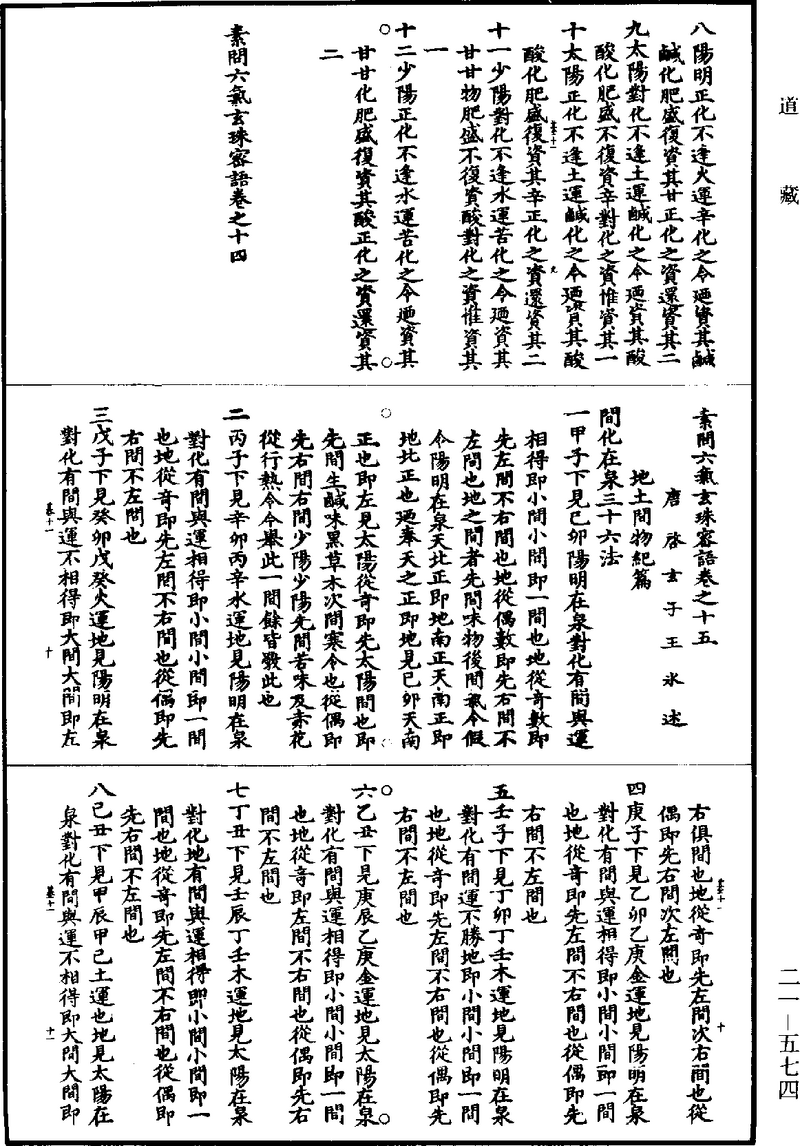 道藏
八陽明正化不逢火運辛化之令廼資其鹹
鹹化肥盛復資其甘正化之資還資其二
九太陽對化不逢土運鹹化之令廼資其酸
酸化肥盛不復資辛對化之資惟資其一
十太陽正化不逢土運鹹化之令廼資其酸
酸化肥盛復資其辛正化之資還資其二
十一少陽對化不逢水運苦化之令廼資其
甘甘物肥盛不復資酸對化之資惟資其
一
十二少陽正化不逢水運苦化之令廼資其
甘甘化肥盛復資其酸正化之資還資其
二
素問六氣玄珠密語卷之十四
素問六氣玄珠密語卷之十五
唐啓玄子王氷述
地土間物紀篇
間化在泉三十六法
一甲子下見己卯陽明在泉對化有間與運
相得即小間小間即一間也地從奇數即
先左間不右間也地從偶數即先右間不
左間也地之間者先間味物後間氣令假
令陽明在泉天北正即地南正天南正即
地北正也廼奉天之正即地見己卯天南
正也即左見太陽從奇即先太陽間也即
先間生鹹味黑草木次間寒令也從偶即
先右間右間少陽少陽先間苦味及赤花
從行熱令令舉此一間餘皆斅此也
二丙子下見辛卯丙辛水運地見陽明在泉
對化有間與運相得即小間小間即一間
也地從奇即先左間不右間也從偶即先
右間不左間也
三戊子下見癸卯戊癸火運地見陽明在泉
對化有間與運不相得即大間大間即左
右俱間也地從奇即先左間次右間也從
偶即先右間次左間也
四庚子下見乙卯乙庚金運地見陽明在泉
對化有間與運相得即小間小間即一間
也地從奇即先左間不右間也從偶即先
右間不左間也
五壬子下見丁卯丁壬木運地見陽明在泉
對化有間運不勝地即小間小間即一間
也地從奇即先左間不右間也從偶即先
右間不左間也
六乙丑下見庚辰乙庚金運地見太陽在泉
對化有間與運相得即小間小間即一間
也地從奇即左間不右間也從偶即先右
間不左間也
七丁丑下見壬辰丁壬木運地見太陽在泉
對化地有間與運相得即小間小間即一
間也地從奇即先左間不右間也從偶即
先右間不左間也
八己丑下見甲辰甲己土運也地見太陽在
泉對化有間與運不相得即大間大間即
二一—五七四